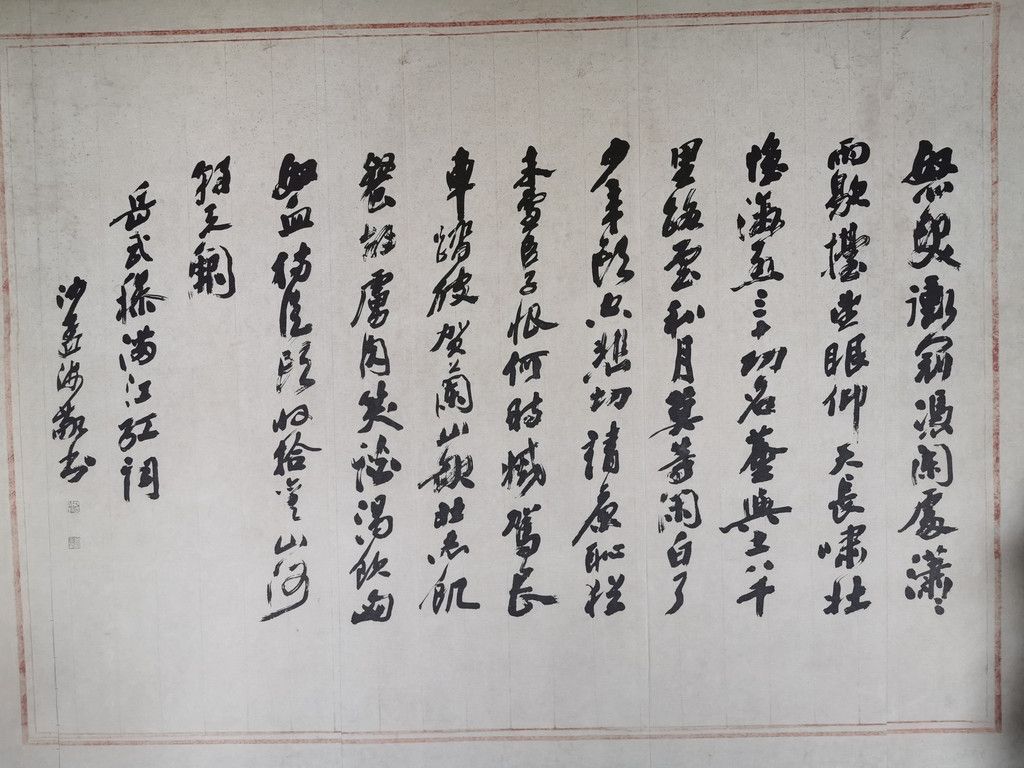 怒髮衝冠憑闌處瀟〻
雨歇擡望眼仰天長嘯壯
懷激烈三十功名塵與土八千
里路雲和月莫等閑白了
少年頭空悲切靖康恥猶
未雪臣子恨何時滅駕長
車踏破賀蘭山缺壯志飢
餐胡虜肉笑談渴飲匈
奴血待從頭收拾舊山河
朝天闕
岳武穆滿江紅詞
沙孟海敬书